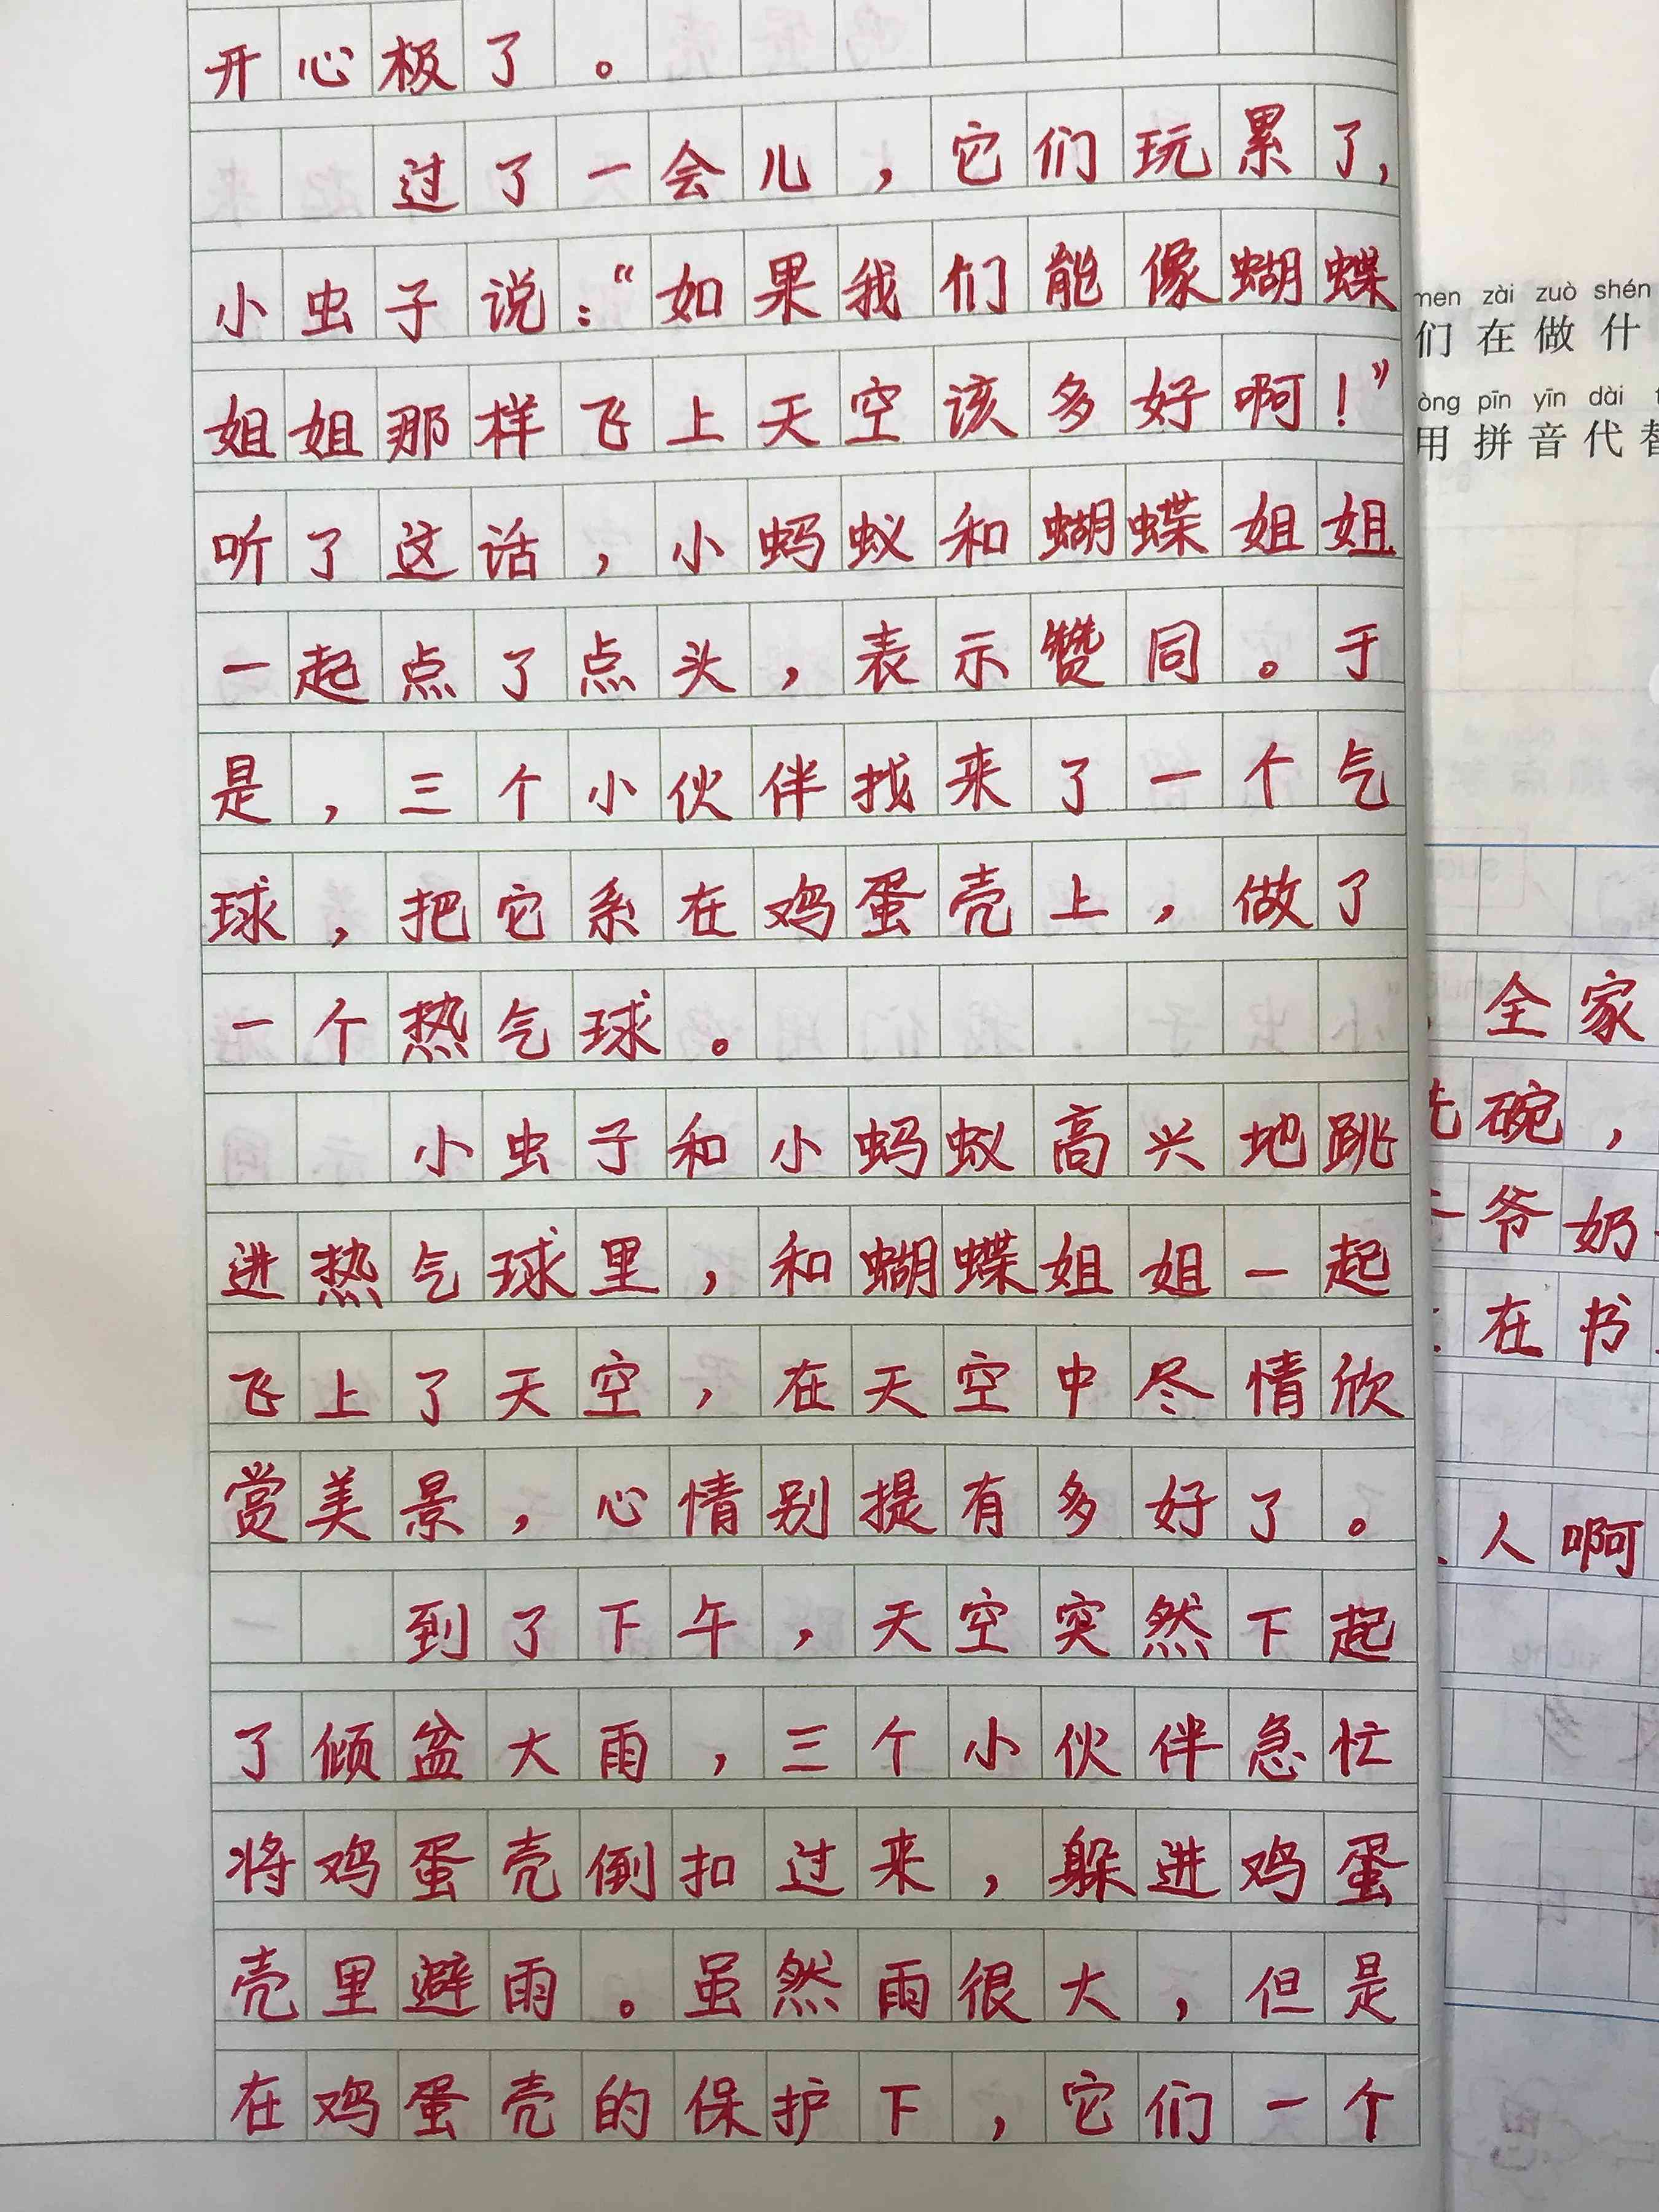 开心极了。
过了一会儿，它们玩累了，
小虫子说：“如果我们能像蝴蝶
姐姐那样飞上天空该多好啊！”
听了这话，小蚂蚁和蝴蝶姐姐
一起点了点头，表示赞同。于
是，三个小伙伴找来了一个气
球，把它系在鸡蛋壳上，做了
一个热气球。
小虫子和小蚂蚁高兴地跳
进热气球里，和蝴蝶姐姐一起
飞上了天空，在天空中尽情欣
赏美景，心情别提有多好了。
到了下午，天空突然下起
了倾盆大雨，三个小伙伴急忙
将鸡蛋壳倒扣过来，躲进鸡蛋
壳里避雨。虽然雨很大，但是
在鸡蛋壳的保护下，它们一个
men zài zuò shén
们在做什
òng pīn yīn dài
用拼音代替
全家
洗碗，
爷奶
在书
人啊